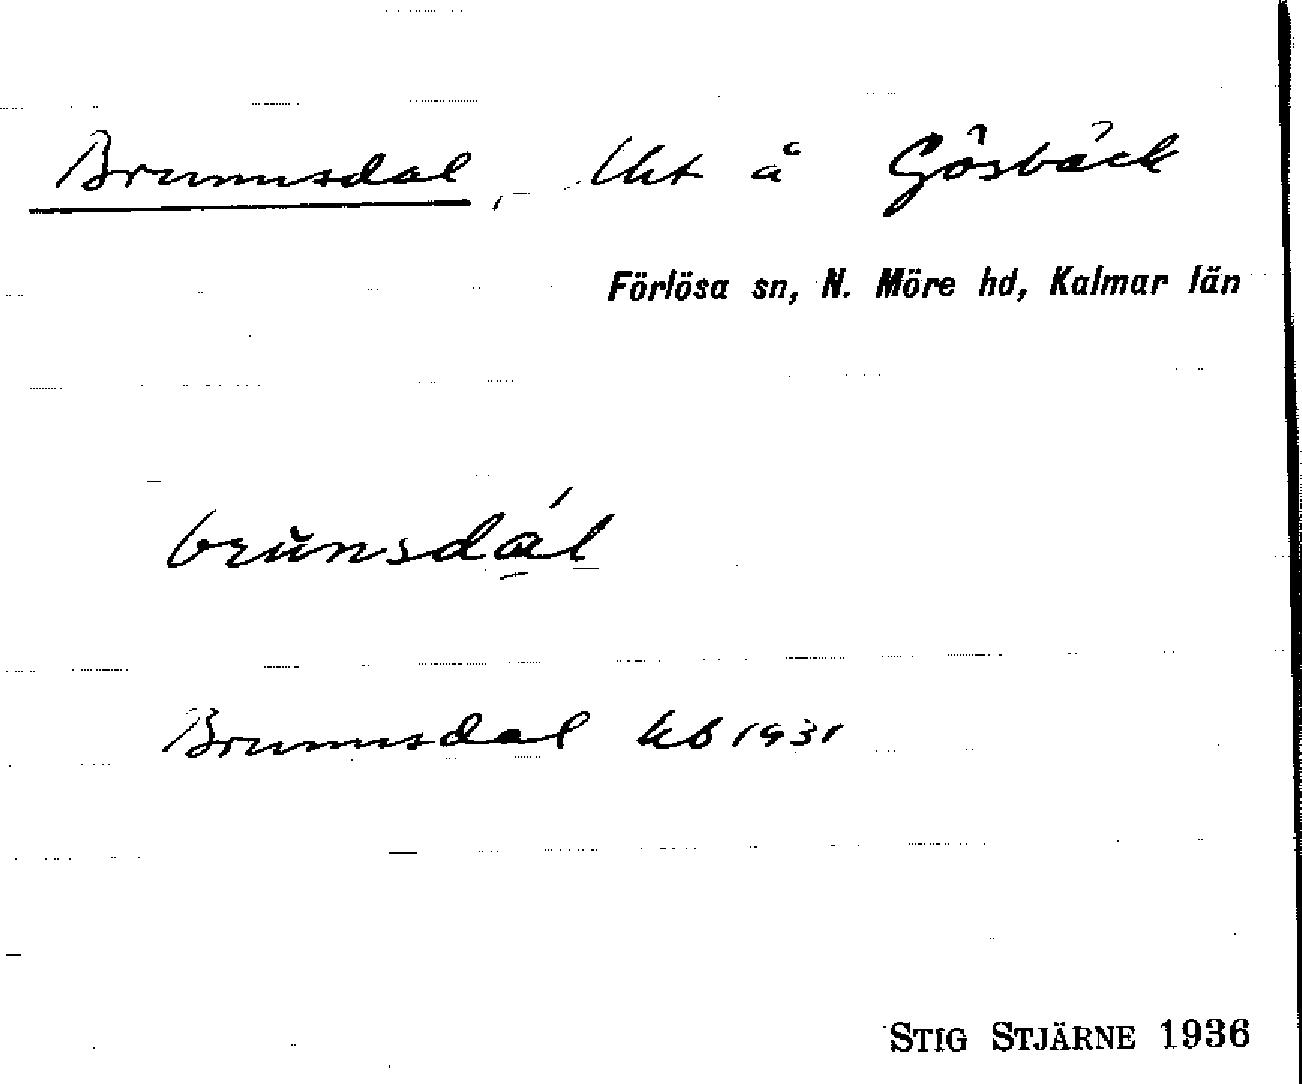 Brunnsdal, lht å Gösbäck
Förlösa sn, N. Möre hd, Kalmar län
brùnsdál
Brunnsdal kb 1931
STIG STJÄRNE 1936